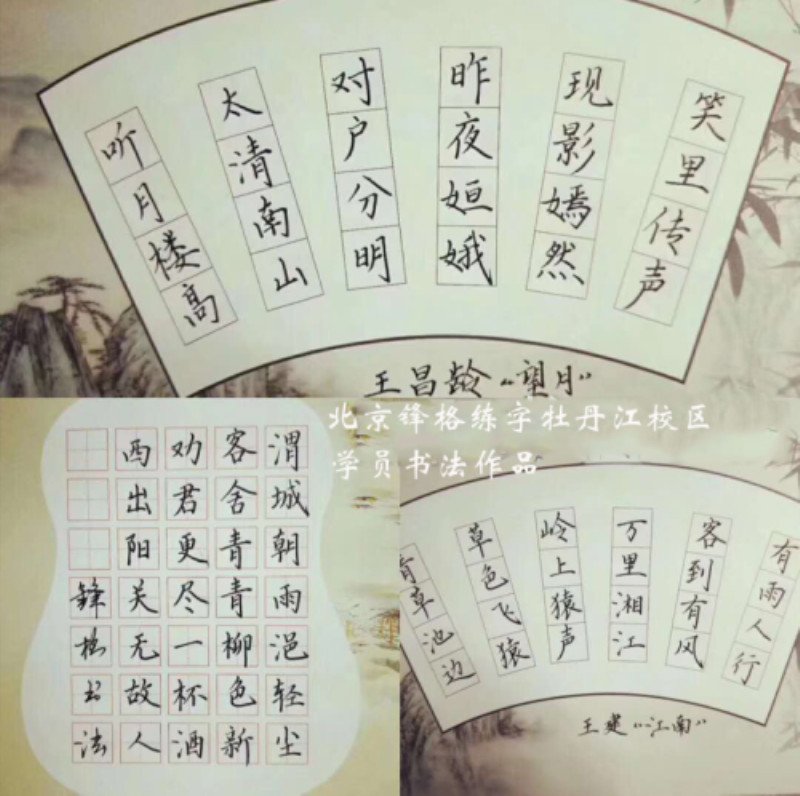 听月楼高
太清南山
对户分明
昨夜姮娥
现影嫣然
笑里传声
王昌龄“望月”
北京锋格练字牡丹江校区
学员书法作品
渭城朝雨浥轻尘
客舍青青柳色新
劝君更尽一杯酒
西出阳关无故人
锋格书法
青草池边
草色飞猿
岭上猿声
万里湘江
客到有风
有雨人行
王建“江南”